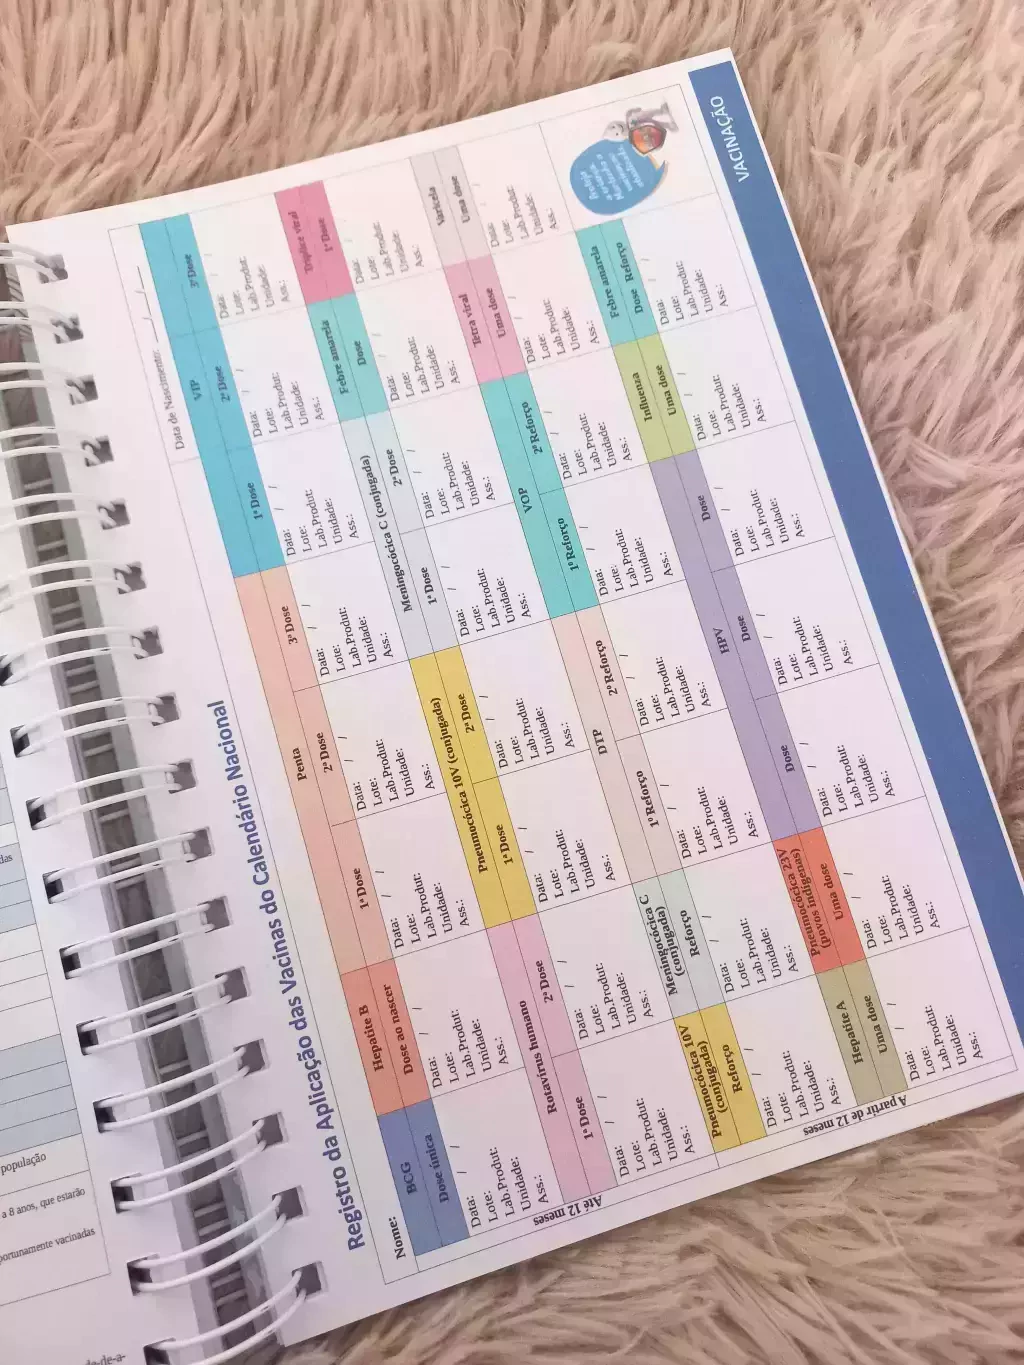 das
população
a 8 anos, que estarão
portunamente vacinadas
de-a-
Registro da Aplicação das Vacinas do Calendário Nacional
Nome: Data de Nascimento: ___/___/___
Até 12 meses
BCG Hepatite B Penta VIP
Dose única Dose ao nascer 1ª Dose 2ª Dose 3ª Dose 1ª Dose 2ª Dose 3ª Dose
Data: / / Data: / / Data: / / Data: / / Data: / / Data: / / Data: / / Data: / /
Lote: Lote: Lote: Lote: Lote: Lote: Lote: Lote:
Lab.Produt: Lab.Produt: Lab.Produt: Lab.Produt: Lab.Produt: Lab.Produt: Lab.Produt: Lab.Produt:
Unidade: Unidade: Unidade: Unidade: Unidade: Unidade: Unidade: Unidade:
Ass.: Ass.: Ass.: Ass.: Ass.: Ass.: Ass.: Ass.:
Rotavírus humano Pneumocócica 10V (conjugada) Meningocócica C (conjugada) Febre amarela Tríplice viral
1ª Dose 2ª Dose 1ª Dose 2ª Dose 1ª Dose 2ª Dose Dose 1ª Dose
Data: / / Data: / / Data: / / Data: / / Data: / / Data: / / Data: / / Data: / /
Lote: Lote: Lote: Lote: Lote: Lote: Lote: Lote:
Lab.Produt: Lab.Produt: Lab.Produt: Lab.Produt: Lab.Produt: Lab.Produt: Lab.Produt: Lab.Produt:
Unidade: Unidade: Unidade: Unidade: Unidade: Unidade: Unidade: Unidade:
Ass.: Ass.: Ass.: Ass.: Ass.: Ass.: Ass.: Ass.:
A partir de 12 meses
Pneumocócica 10V (conjugada) Meningocócica C (conjugada) DTP VOP Tetra viral Varicela
Reforço Reforço 1º Reforço 2º Reforço 1º Reforço 2º Reforço Uma dose Uma dose
Data: / / Data: / / Data: / / Data: / / Data: / / Data: / / Data: / / Data: / /
Lote: Lote: Lote: Lote: Lote: Lote: Lote: Lote:
Lab.Produt: Lab.Produt: Lab.Produt: Lab.Produt: Lab.Produt: Lab.Produt: Lab.Produt: Lab.Produt:
Unidade: Unidade: Unidade: Unidade: Unidade: Unidade: Unidade: Unidade:
Ass.: Ass.: Ass.: Ass.: Ass.: Ass.: Ass.: Ass.:
Hepatite A Pneumocócica 23V (povos indígenas) HPV Influenza Febre amarela
Uma dose Uma dose Dose Dose Dose Uma dose Dose Reforço
Data: / / Data: / / Data: / / Data: / / Data: / / Data: / / Data: / /
Lote: Lote: Lote: Lote: Lote: Lote: Lote:
Lab.Produt: Lab.Produt: Lab.Produt: Lab.Produt: Lab.Produt: Lab.Produt: Lab.Produt:
Unidade: Unidade: Unidade: Unidade: Unidade: Unidade: Unidade:
Ass.: Ass.: Ass.: Ass.: Ass.: Ass.: Ass.:
VACINAÇÃO